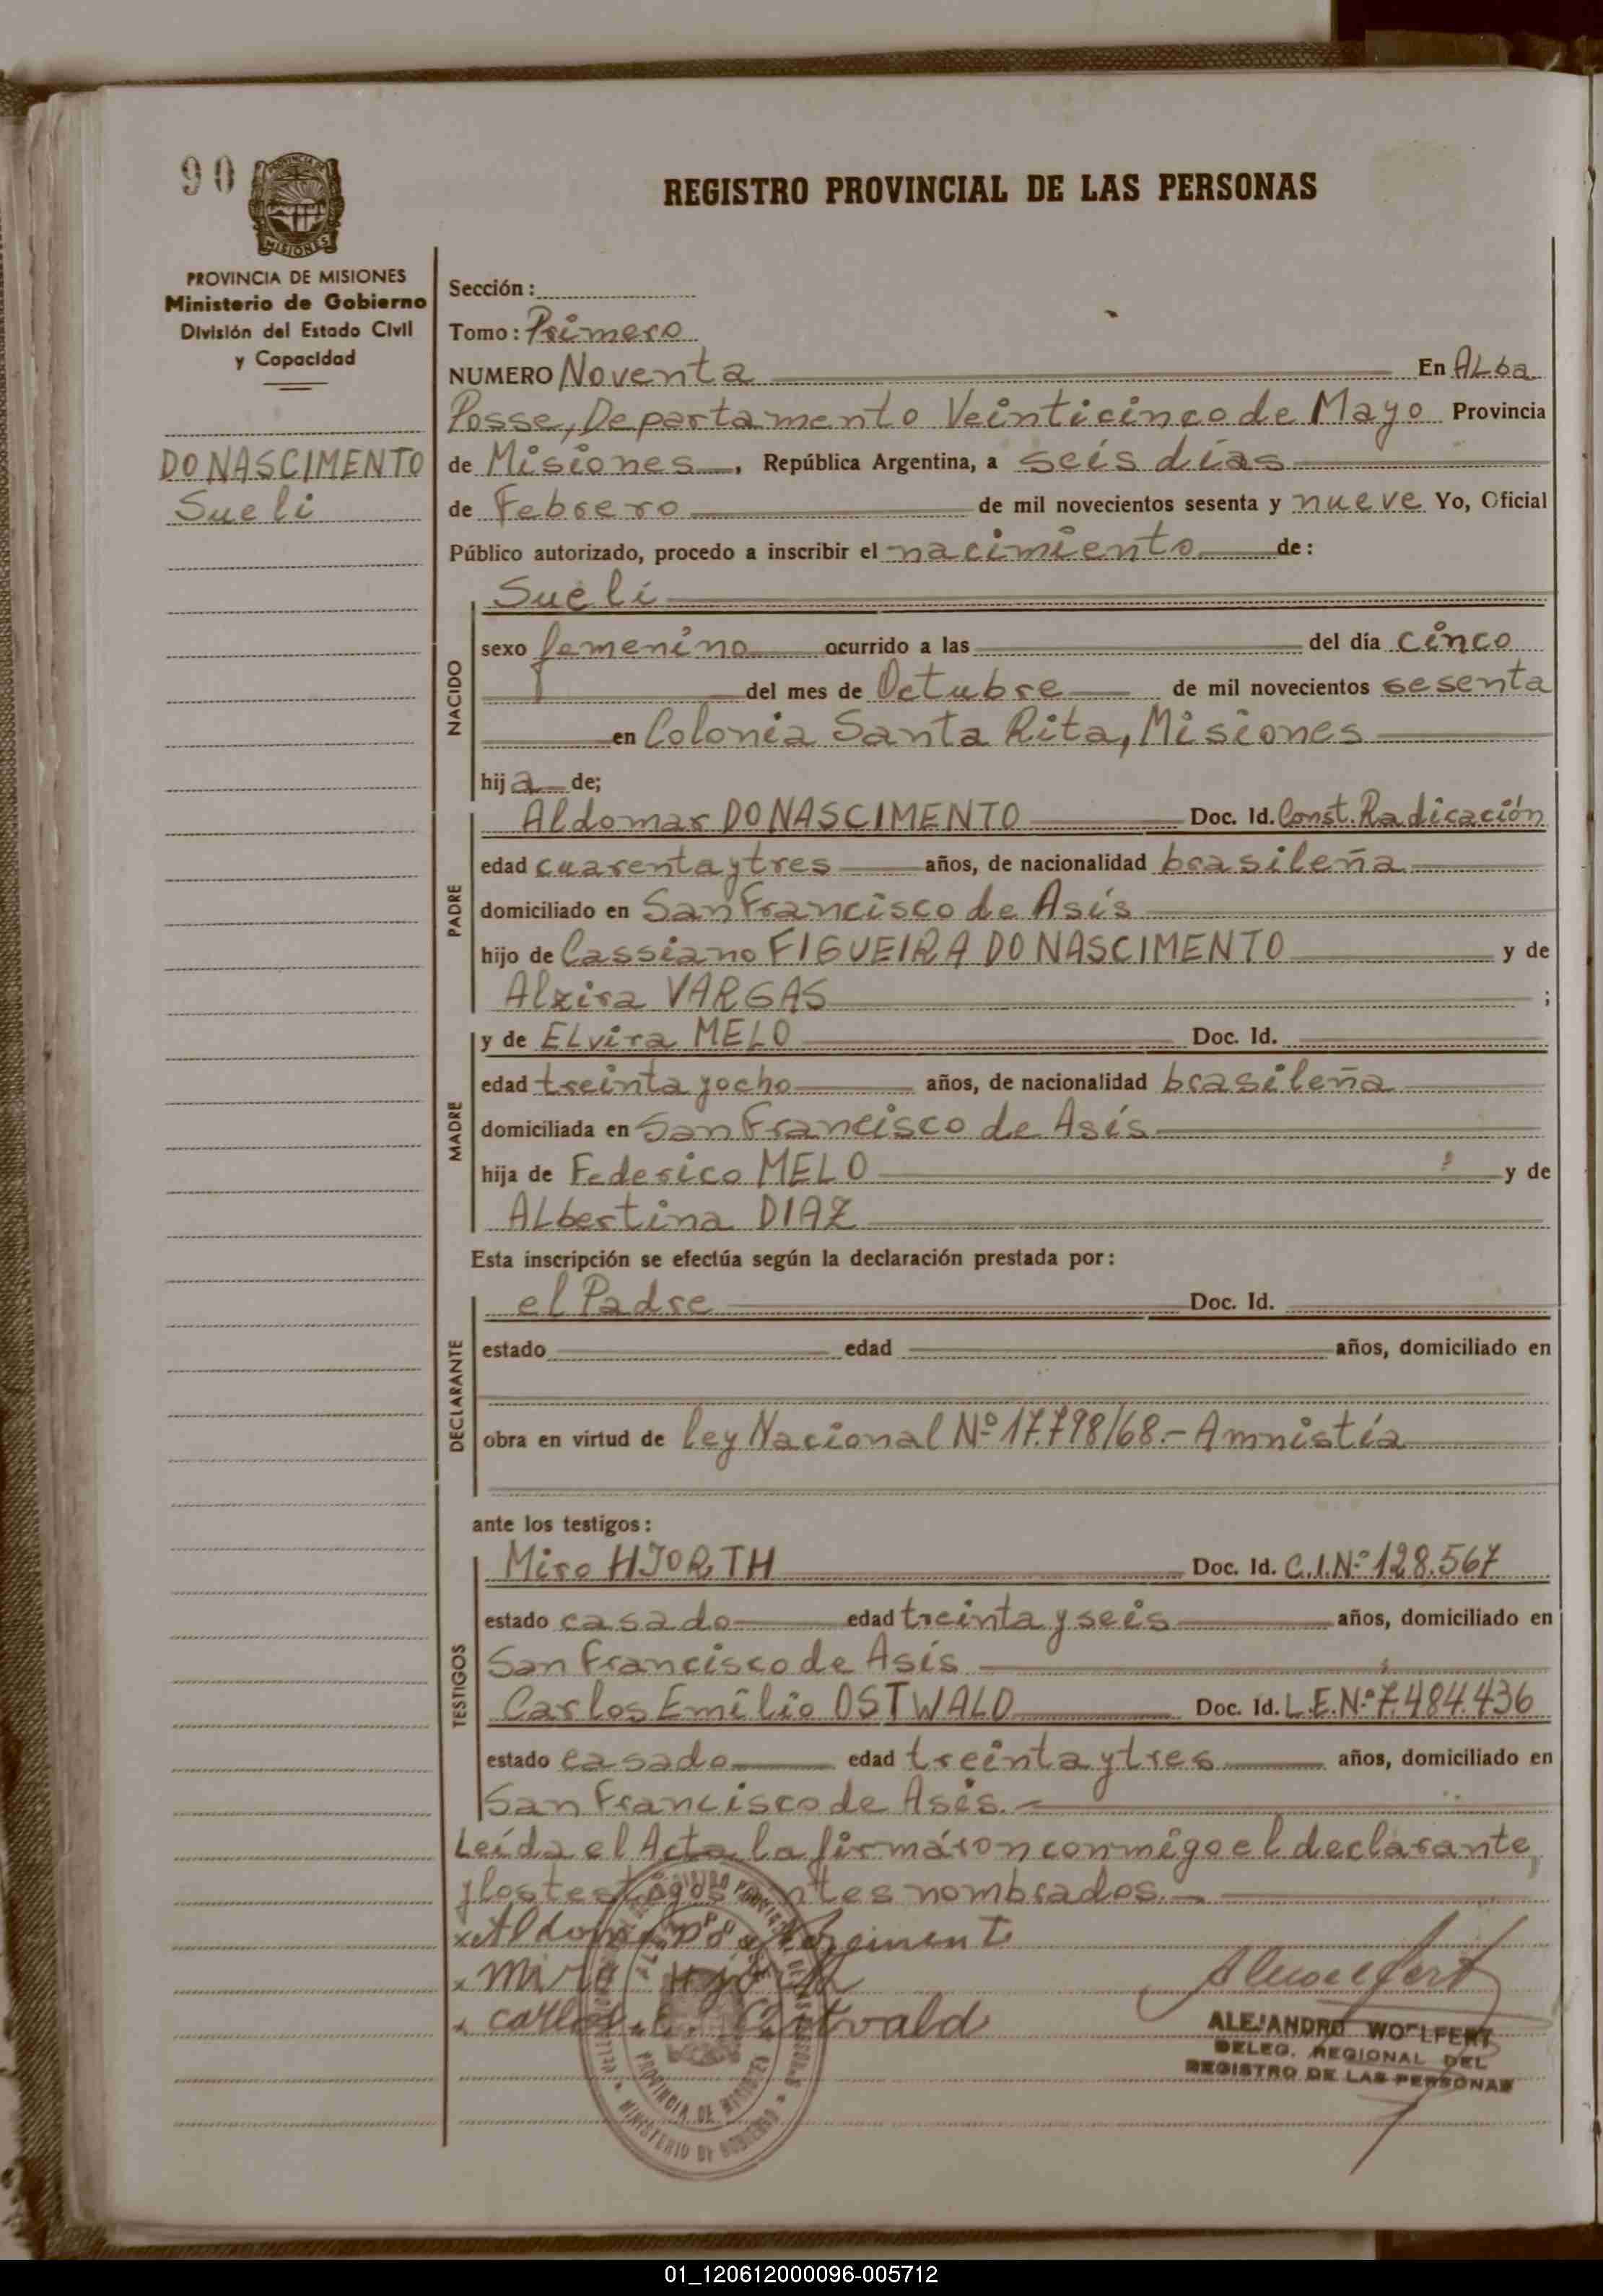 90
PROVINCIA DE
MISIONES
REGISTRO PROVINCIAL DE LAS PERSONAS
PROVINCIA DE MISIONES
Ministerio de Gobierno
División del Estado Civil
y Capacidad
DO NASCIMENTO
Sueli
Sección:
Tomo: Primero
NUMERO Noventa En ALba
Posse, Departamento Veinticinco de Mayo Provincia
de Misiones, República Argentina, a seis días
de Febrero de mil novecientos sesenta y nueve Yo, Oficial
Público autorizado, procedo a inscribir el nacimiento de:
NACIDO
Sueli
sexo femenino ocurrido a las del día cinco
del mes de Octubre de mil novecientos sesenta
en Colonia Santa Rita, Misiones
hija de;
PADRE
Aldomar DO NASCIMENTO Doc. Id. Const. Radicación
edad cuarenta y tres años, de nacionalidad brasileña
domiciliado en San Francisco de Asís
hijo de Cassiano FIGUEIRA DO NASCIMENTO y de
Alzira VARGAS ;
MADRE
y de ELvira MELO Doc. Id.
edad treinta y ocho años, de nacionalidad brasileña
domiciliada en San Francisco de Asís
hija de Federico MELO y de
ALbertina DIAZ
Esta inscripción se efectúa según la declaración prestada por:
DECLARANTE
el Padre Doc. Id.
estado edad años, domiciliado en
obra en virtud de ley Nacional Nº 17.798/68.- Amnistía
ante los testigos:
TESTIGOS
Miro HJORTH Doc. Id. C.I.Nº 128.567
estado casado edad treinta y seis años, domiciliado en
San Francisco de Asís
Carlos Emilio OSTWALD Doc. Id. L.E.Nº 7.484.436
estado casado edad treinta y tres años, domiciliado en
San Francisco de Asís.-
Leída el Acta la firmáron conmigo el declarante,
y los testigos antes nombrados.-
miro Hjorth
carlos E. Ostwald
ALEJANDRO WOELFERT
DELEG. REGIONAL DEL
REGISTRO DE LAS PERSONAS
PROVINCIA DE MISIONES
MINISTERIO DE GOBIERNO
01_120612000096-005712